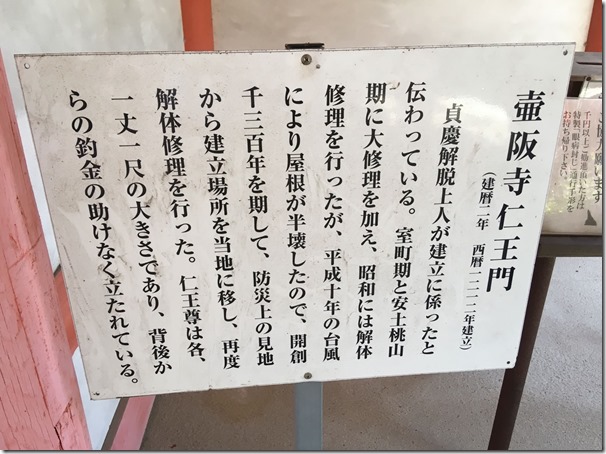 壺阪寺仁王門
（建暦二年　西暦一二一二年建立）
貞慶解脱上人が建立に係ったと
伝わっている。室町期と安土桃山
期に大修理を加え、昭和には解体
修理を行ったが、平成十年の台風
により屋根が半壊したので、開創
千三百年を期して、防災上の見地
から建立場所を当地に移し、再度
解体修理を行った。仁王尊は各、
一丈一尺の大きさであり、背後か
らの釣金の助けなく立たれている。
願います
千円以上ご勧進頂いた方は
お持ち帰り下さい。